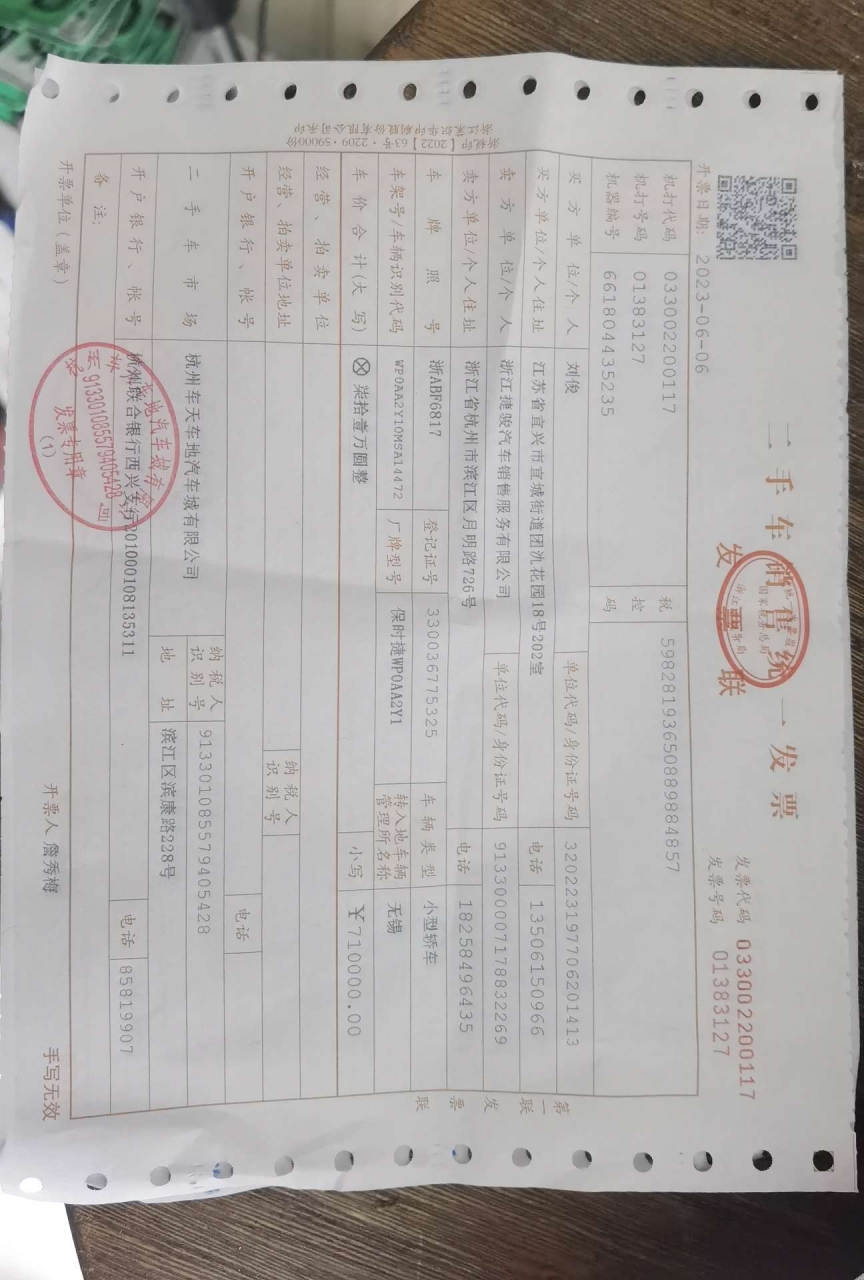 二手车销售统一发票
发票联
发票代码 033002200117
发票号码 01383127
开票日期: 2023-06-06
机打代码 033002200117
机打号码 01383127
机器编号 661804435235
税控码 59828193650889884857
买方单位/个人 刘俊 单位代码/身份证号码 320223197706201413
买方单位/个人住址 江苏省宜兴市宜城街道团氿花园18号202室 电话 13506150966
卖方单位/个人 浙江捷骏汽车销售服务有限公司 单位代码/身份证号码 913300007178832269
卖方单位/个人住址 浙江省杭州市滨江区月明路726号 电话 18258496435
车牌照号 浙ABF6817 登记证号 330036775325 车辆类型 小型轿车
车架号/车辆识别代码 WP0AA2Y10MSA14472 厂牌型号 保时捷WP0AA2Y1 转入地车辆管理所名称 无锡
车价合计(大写) ⊗柒拾壹万圆整 小写 ¥710000.00
经营、拍卖单位
经营、拍卖单位地址 纳税人识别号
开户银行、帐号 电话
二手车市场 杭州车天车地汽车城有限公司 纳税人识别号 913301085579405428
地址 滨江区滨康路228号
开户银行、帐号 杭州联合银行西兴支行201000108135311 电话 85819907
备注:
开票单位(盖章) 开票人 詹秀梅 手写无效
第一联 发票联
浙税印【2022】63号·2209·59000份
国家税务总局
913301085579405428
发票专用章
(1)